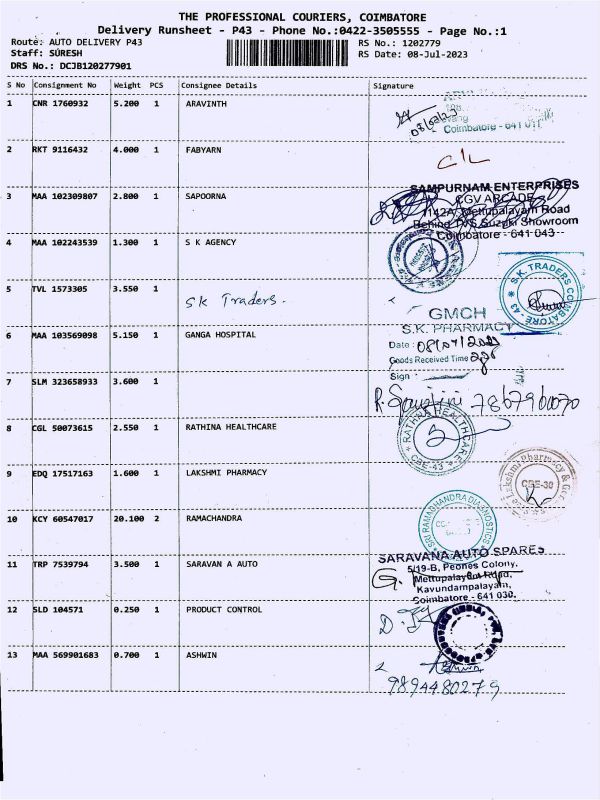 THE PROFESSIONAL COURIERS, COIMBATORE
Delivery Runsheet - P43 - Phone No.:0422-3505555 - Page No.:1
Route: AUTO DELIVERY P43 RS No.: 1202779
Staff: SURESH RS Date: 08-Jul-2023
DRS No.: DCJB120277901
S No Consignment No Weight PCS Consignee Details Signature
1 CNR 1760932 5.200 1 ARAVINTH
Coimbatore - 641 011
2 RKT 9116432 4.000 1 FABYARN
C/L
3 MAA 102309807 2.800 1 SAPOORNA
SAMPURNAM ENTERPRISES
CGV ARCADE
1142A, Mettupalayam Road
Behind TVS Suzuki Showroom
Coimbatore - 641 043
4 MAA 102243539 1.300 1 S K AGENCY
5 TVL 1573305 3.550 1 SK Traders.
S.K. TRADERS COIMBATORE - 43
6 MAA 103569098 5.150 1 GANGA HOSPITAL
GMCH
S.K. PHARMACY
Date: 08/07/2023
Goods Received Time
Sign
7 SLM 323658933 3.600 1
7867960070
8 CGL 50073615 2.550 1 RATHINA HEALTHCARE
RATHINA HEALTHCARE CBE-43
9 EDQ 17517163 1.600 1 LAKSHMI PHARMACY
Lakshmi Pharmacy &
CBE-30
10 KCY 60547017 20.100 2 RAMACHANDRA
SRI RAMACHANDRA DIAGNOSTICS
11 TRP 7539794 3.500 1 SARAVAN A AUTO
SARAVANA AUTO SPARES
5/19-B, Peones Colony,
Mettupalayam Road,
Kavundampalayam,
Coimbatore - 641 030.
12 SLD 104571 0.250 1 PRODUCT CONTROL
13 MAA 569901683 0.700 1 ASHWIN
9894480279